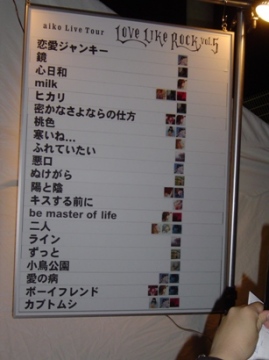 aiko Live Tour Love Like Rock vol.5
恋愛ジャンキー
鏡
心日和
milk
ヒカリ
密かなさよならの仕方
桃色
寒いね…
ふれていたい
悪口
ぬけがら
陽と陰
キスする前に
be master of life
二人
ライン
ずっと
小鳥公園
愛の病
ボーイフレンド
カブトムシ